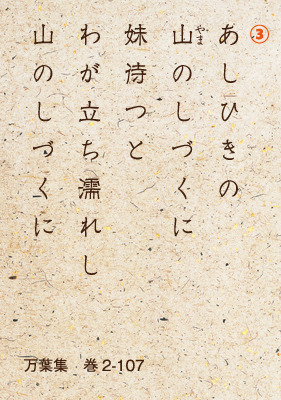 ③
あしひきの
山のしづくに
やま
妹待つと
わが立ち濡れし
山のしづくに
万葉集 巻2-107